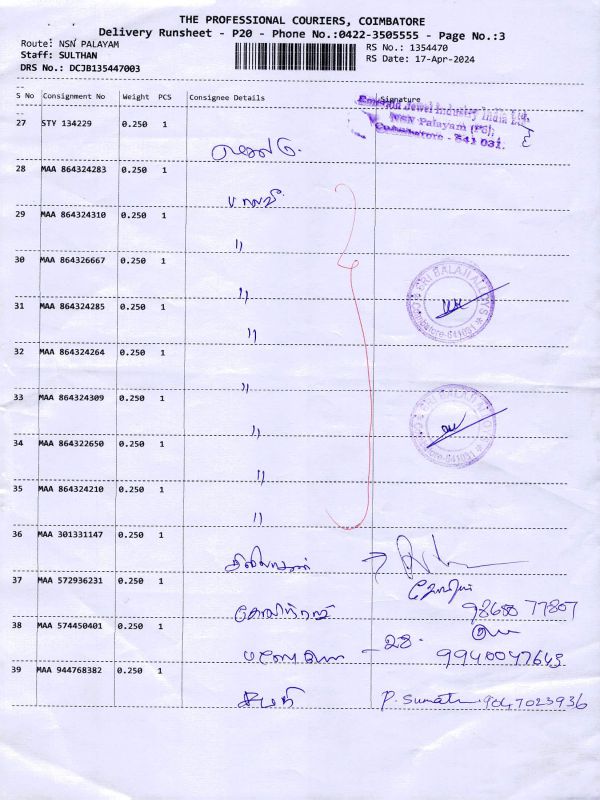 THE PROFESSIONAL COURIERS, COIMBATORE
Delivery Runsheet - P20 - Phone No.:0422-3505555 - Page No.:3
Route: NSN PALAYAM
RS No.: 1354470
Staff: SULTHAN
RS Date: 17-Apr-2024
DRS No.: DCJB135447003
S No Consignment No Weight PCS Consignee Details Signature
Emerald Jewel Industry India Ltd,
NSN Palayam (PO),
Coimbatore - 641 031.
27 STY 134229 0.250 1
28 MAA 864324283 0.250 1
29 MAA 864324310 0.250 1
"
30 MAA 864326667 0.250 1
SRI BALAJI ALLOYS
Coimbatore-641031
"
31 MAA 864324285 0.250 1
"
32 MAA 864324264 0.250 1
"
33 MAA 864324309 0.250 1
SRI BALAJI
641031
"
34 MAA 864322650 0.250 1
"
35 MAA 864324210 0.250 1
"
36 MAA 301331147 0.250 1
37 MAA 572936231 0.250 1
77807
38 MAA 574450401 0.250 1
- 28.
9940047643
39 MAA 944768382 0.250 1
P. Sumathi 9047023936